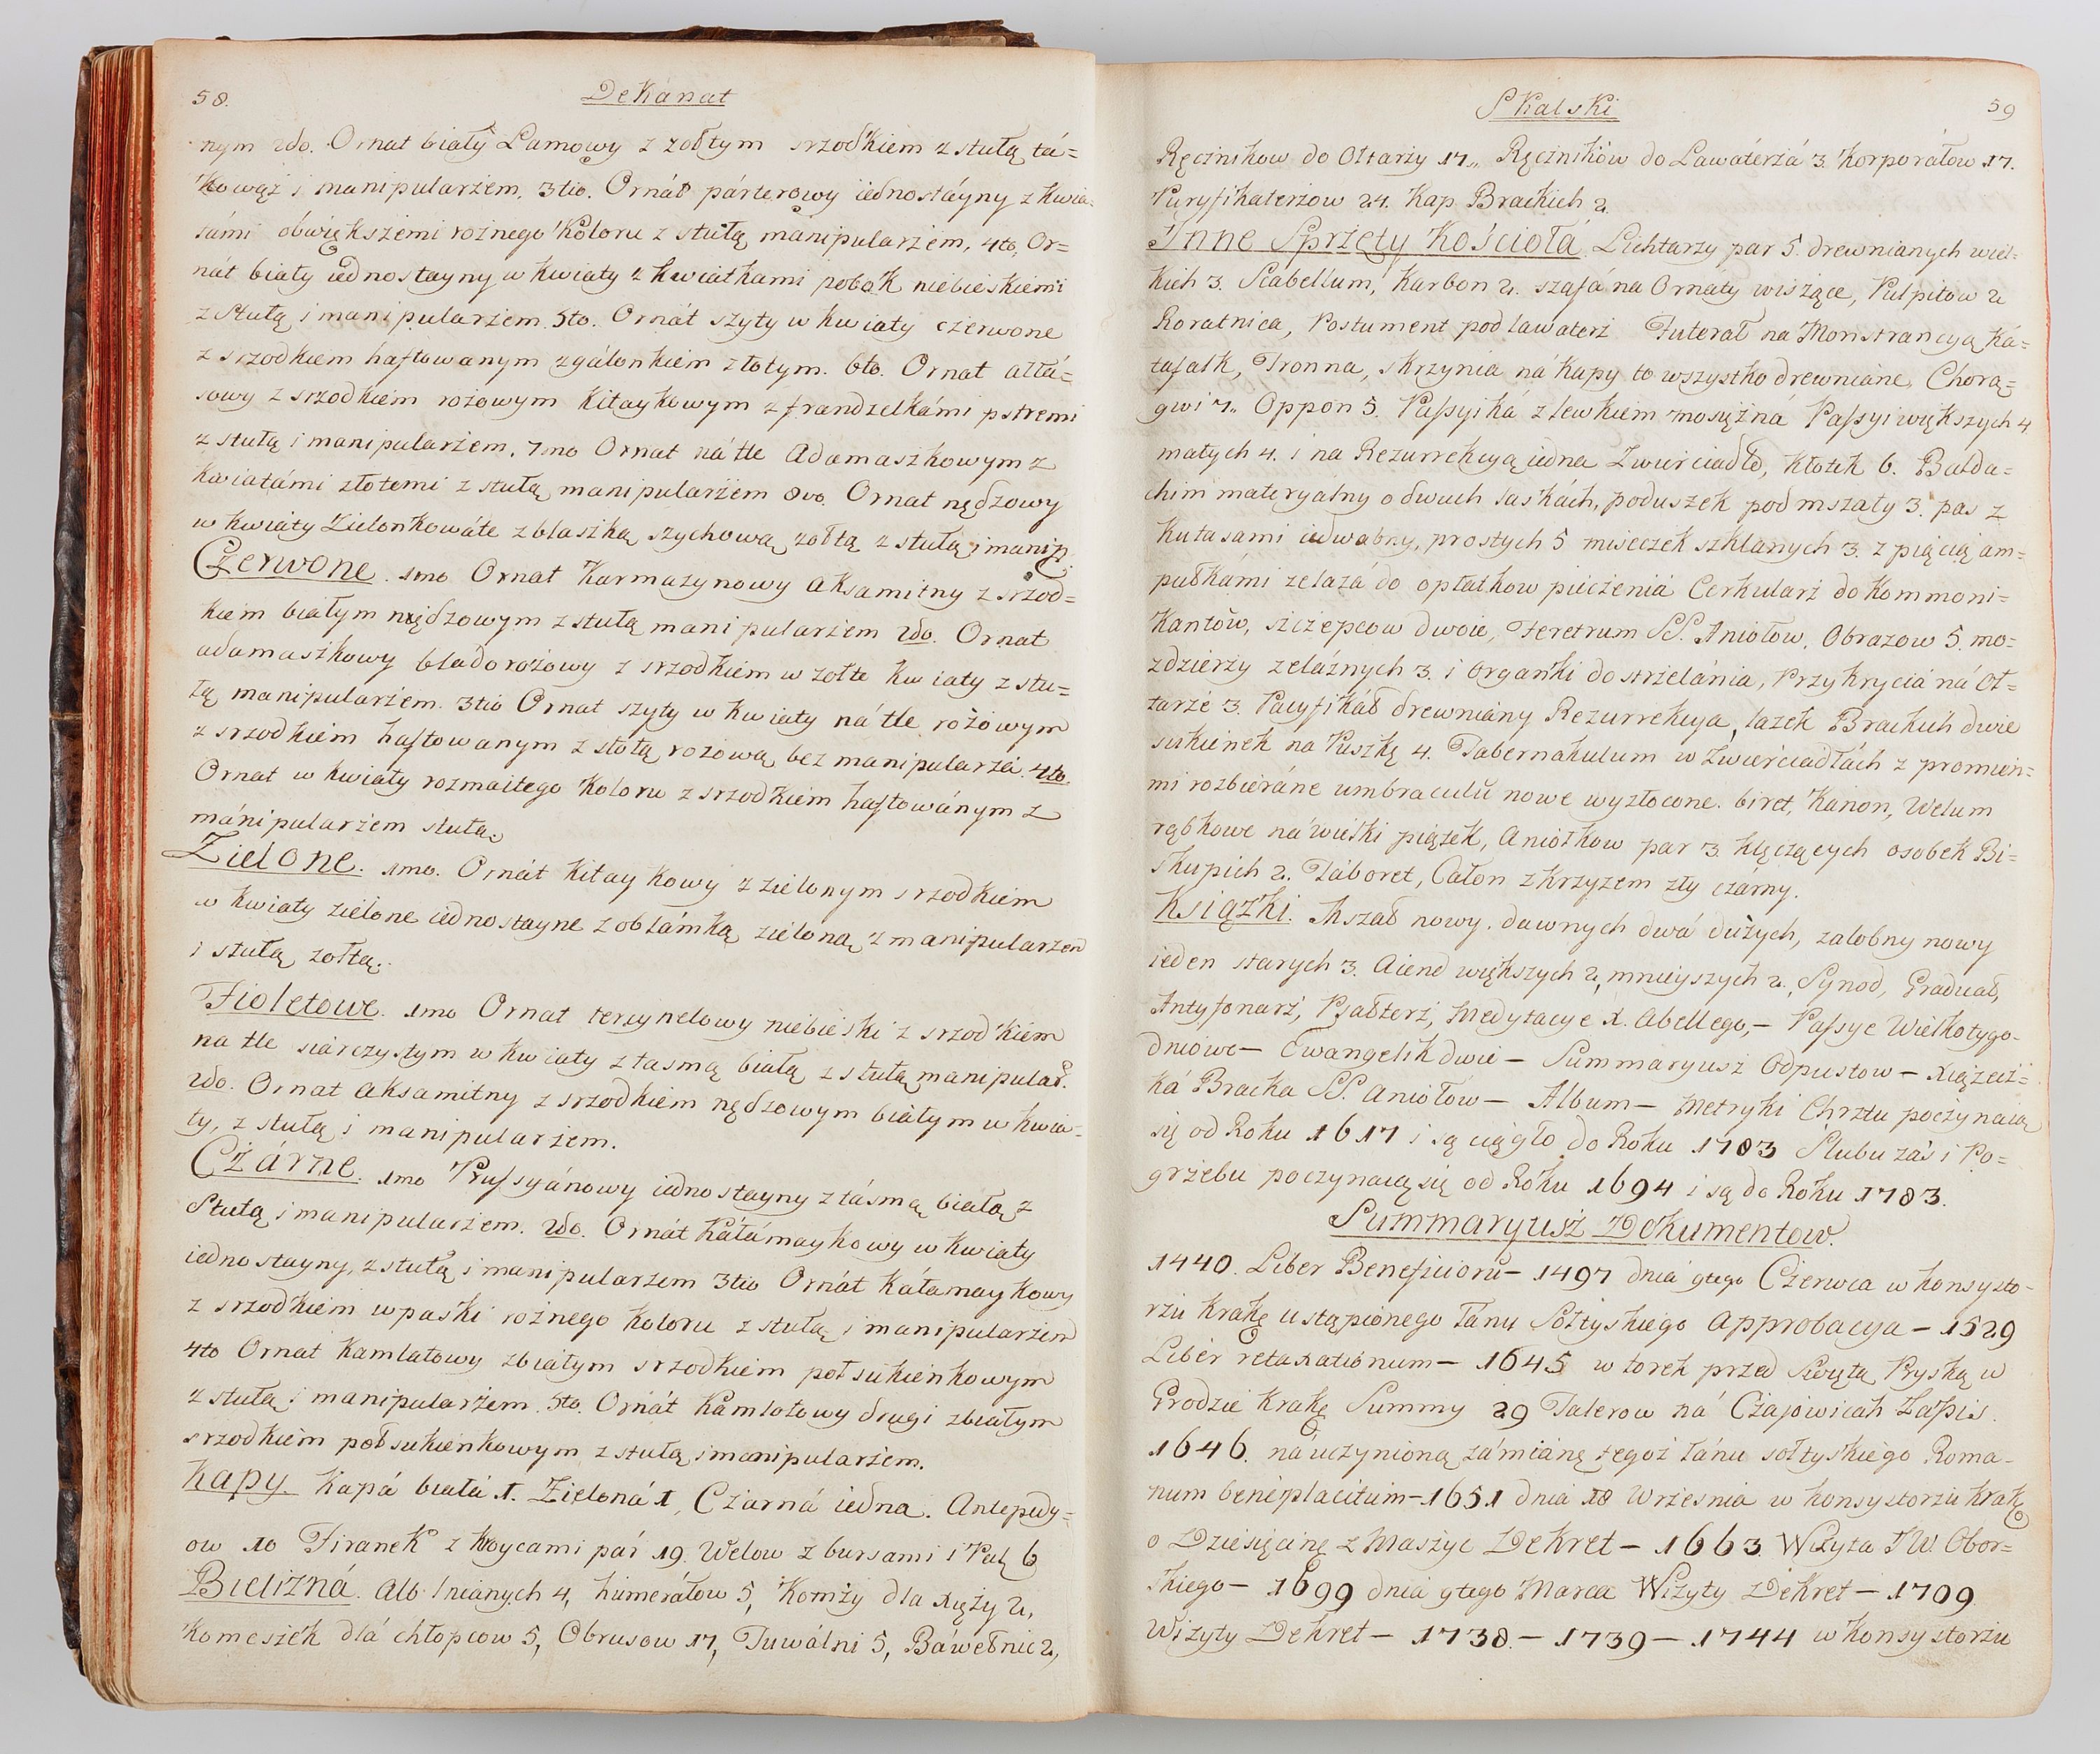 58.
Dekánat
nym 2do. Ornat biały Lamowy z zołtym srzodkiem z stułą tá=
kowąż i manipularzem, 3tio. Ornát párterowy iednostáyny z kwia=
támi obwiększemi rożnego Koloru z stułą manipularzem, 4to, Or=
nát biały iednostayny w kwiaty z kwiatkami pobok niebieskiemi
z Stułą i manipularzem 5to. Ornát szyty w kwiaty czerwone
z srzodkiem haftowanym z gálonkiem złotym. 6to. Ornat atłá=
sowy z srzodkiem rożowym Kitaykowym z frandzelkámi pstremi
z stułą i manipularzem, 7mo Ornat ná tle Adamaszkowym z
kwiatámi złotemi z stułą manipularzem 8vo. Ornat nędzowy
w kwiáty Zielonkowáte z blaszką szychową zołtą z stułą i manip.
Czerwone. 1mo Ornat Karmazynowy aksamitny z srzod=
kiem białym nędzowym z stułą manipularzem 2do. Ornat
adamaszkowy bladorożowy z srzodkiem w zołte kwiaty z stu=
łą manipularzem. 3tio Ornat szyty w kwiaty ná tle rożowym
z srzodkiem haftowanym z stołą rożową bez manipularza. 4to
Ornat w kwiaty rozmaitego Koloru z srzodkiem haftowánym z
mánipularzem stułą.
Zielone. 1mo. Ornát Kitaykowy z zielonym srzodkiem
w kwiaty zielone iednostayne z oblámką zieloną z manipularzem
i stułą zołtą.
Fioletowe. 1mo Ornat tercynelowy niebieski z srzodkiem
na tle siárczystym w kwiaty z tasmą białą z stułą manipular.
2do. Ornat aksamitny z srzodkiem nędzowym białym w kwia=
ty, z stułą i manipularzem.
Czárne. 1mo Prussyánowy iednostayny z tásmą białą z
Stułą i manipularzem. 2do. Ornát Káłámaykowy w kwiaty
iednostayny, z stułą i manipularzem 3tio Ornát Káłamaykowy
z srzodkiem w paski rożnego koloru z stułą i manipularzem
4to Ornat Kamlatowy z białym srzodkiem połsukienkowym
z stułą i manipularzem. 5to. Ornát Kamlotowy drugi z białym
srzodkiem połsukienkowym z stułą i manipularzem.
Kapy. Kapá biała 1. Zieloná 1, Czarná iedna. Antepedy=
ow 10 Firanek z kroycami pár 19. Welow z bursami i Pal 6
Bielizná. Alb lnianych 4, humerałow 5, Komży dla xięży 2,
Komeszek dlá chłopcow 5, Obrusow 17, Tuwálni 5, Báwełnic 2,
Skalski
59
Ręcznikow do Ołtarzy 17,, Ręczników do Lawáterzá 3. Korporáłow 17.
Puryfikaterzow 24. Kap Brackich 2.
Inne Sprzęty Kościołá. Lichtarzy par 5. drewnianych wiel=
kich 3. Scabellum, Karbon 2. szafá na Ornáty wiszące, Pulpitow 2
Roratnica, Postument pod lawaterz Futerał na Monstrancyą Ká=
tafalk, Tronna, skrzynia ná Kapy to wszystko drewniane, Chorą=
gwi 7,, Oppon 5. Passyiká z lewkiem mosiężná Passyi większych 4
małych 4. i na Rezurrekcyą iedna Zwierciadło, Kłotek 6. Balda=
chim materyalny o dwuch laskách, poduszek pod mszały 3. pas z
Kutasami iedwabny, prostych 5 miseczek szklanych 3. z pięcią am=
pułkámi zelazá do opłatkow pieczenia Cerkularz do Kommoni=
kantów, szczepcow dwoie, Feretrum SS. Aniołow, Obrazow 5. mo=
zdzierzy zeláznych 3. i organki do strzelánia, Przykrycia ná Oł=
tarze 3. Pacyfikáł drewniány Rezurrekcya, lazek Brackich dwie
sukienek na Puszkę 4. Tabernakulum w Zwierciadłách z promien=
mi rozbieráne umbraculū nowe wyzłocone. biret, Kánon, Welum
rąbkowe ná wielki piątek, Aniołkow par 3. klęczących osobek Bi=
skupich 2. Táboret, Całon z krzyzem zły czárny.
Książki. Mszał nowy. dawnych dwá dużych, zalobny nowy
ieden starych 3. Aiend większych 2, mnieyszych 2. Synod, Graduał,
Antyfonarz, Psałterz, Medytacye X. Abellego, – Passye Wielkotygo-
dniowe – Ewangelik dwie – Summaryusz Odpustow – xiążecz=
ká Bracka SS. Aniołow – Album – Metryki Chrztu poczynaią
się od Roku 1617 i są ciągło do Roku 1783 Slubu zaś i Po=
grzebu poczynaią się od Roku 1694 i są do Roku 1783.
Summaryusz Dokumentow.
1440. Liber Beneficiorū – 1497 dnia 9tego Czerwca w konsysto-
rzu Krakę ustąpionego Łanu Sołtyskiego Approbacya – 1529
Liber retaxationum – 1645 w torek przed Swiętą Pryską w
Grodzie Krakę Summy 29 Talerow ná Czajowicah Zapis.
1646. ná uczynioną zámiánę tegoż łánu sołtyskiego Roma-
num beneplacitum – 1651 dnia 18 Wrzesnia w konsystorzu Krakę
o Dziesięcinę z Maszyc Dekret – 1663. Wizyta JW. Obor=
skiego – 1699 dnia 9tego Marca Wizyty Dekret – 1709.
Wizyty Dekret – 1738. – 1739 – 1744 w konsystorzu